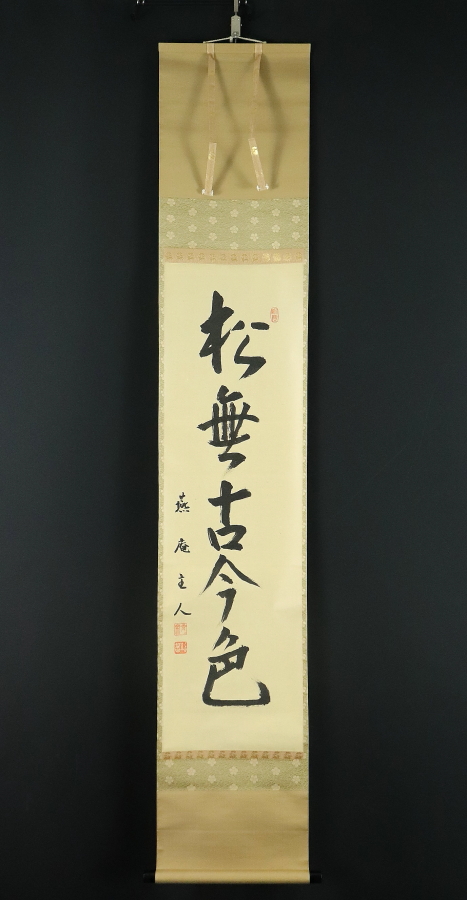 松無古今色
燕庵主人